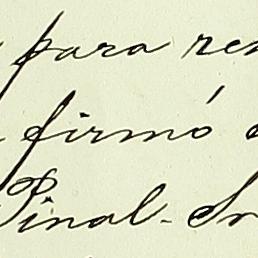 para ren
firmó
Pinal - Sr